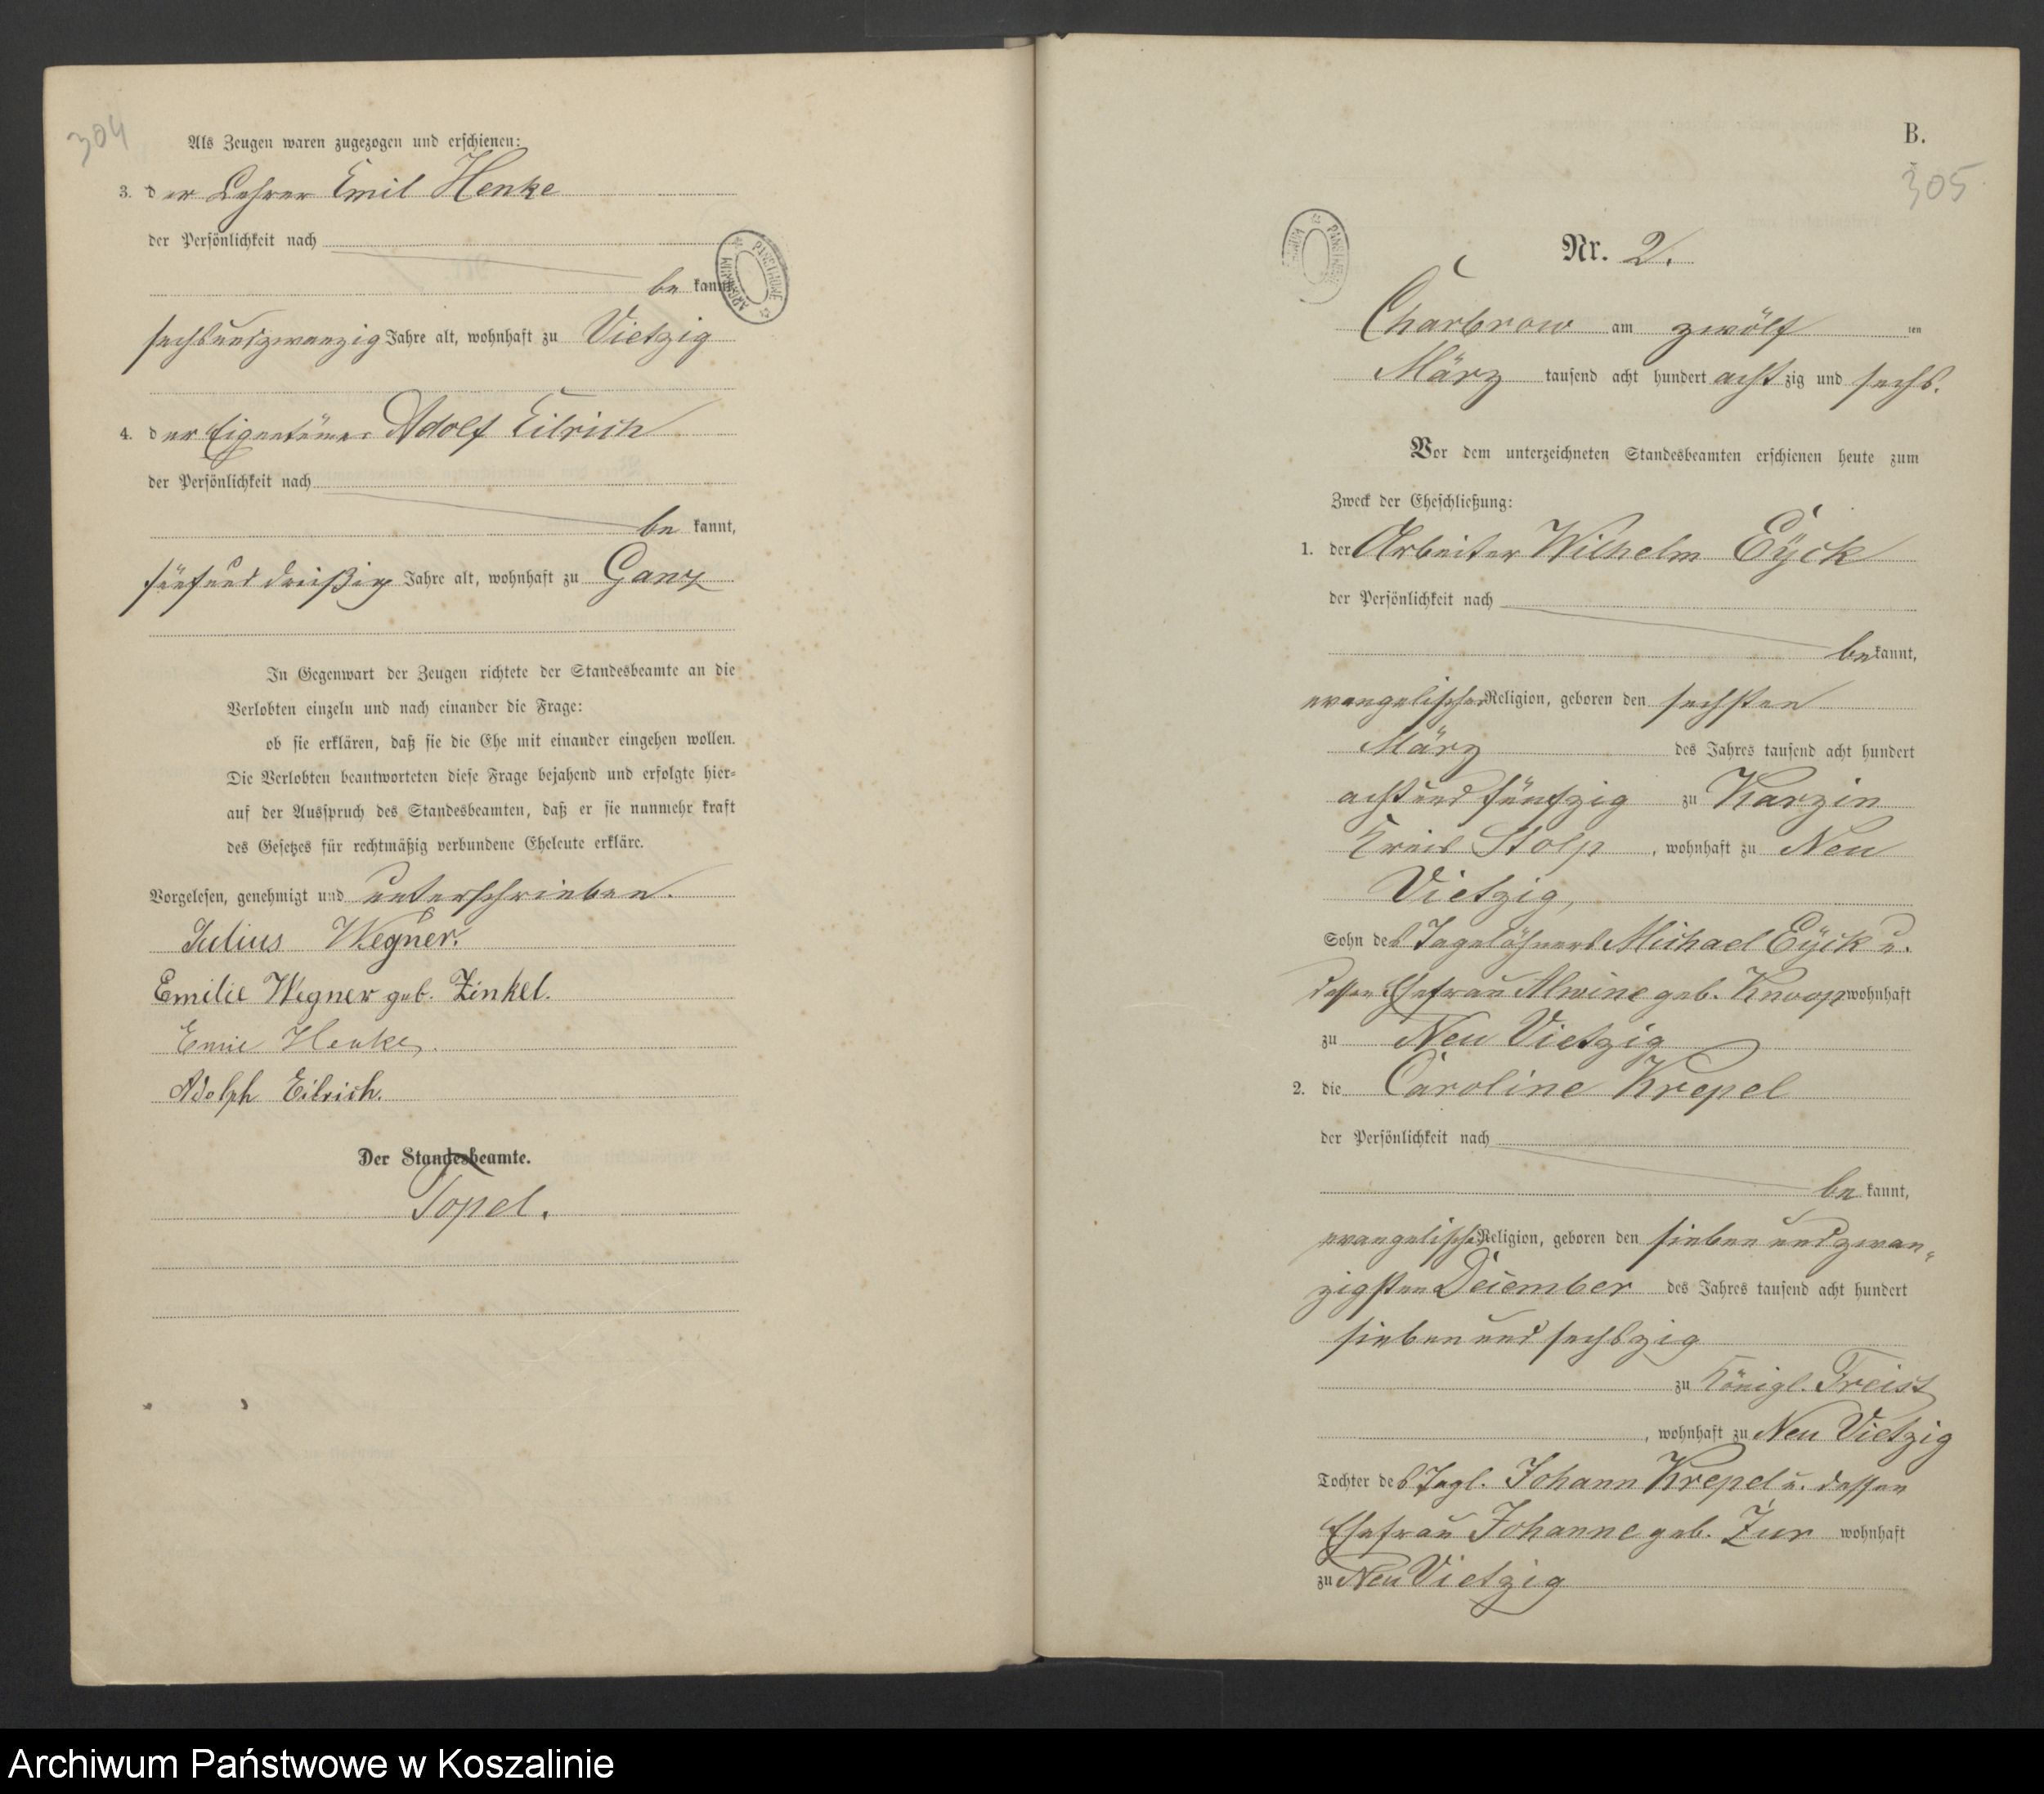 304
Als Zeugen waren zugezogen und erschienen:
3. der Lehrer Emil Henke
der Persönlichkeit nach
be kannt,
sechsundzwanzig Jahre alt, wohnhaft zu Vietzig
4. der Eigentümer Adolf Eilrich
der Persönlichkeit nach
be kannt,
fünfunddreißig Jahre alt, wohnhaft zu Ganz
In Gegenwart der Zeugen richtete der Standesbeamte an die
Verlobten einzeln und nach einander die Frage:
ob sie erklären, daß sie die Ehe mit einander eingehen wollen.
Die Verlobten beantworteten diese Frage bejahend und erfolgte hier-
auf der Ausspruch des Standesbeamten, daß er sie nunmehr kraft
des Gesetzes für rechtmäßig verbundene Eheleute erkläre.
Vorgelesen, genehmigt und unterschrieben.
Julius Wegner.
Emilie Wegner geb. Zinkel.
Emil Henke.
Adolph Eilrich.
Der Standesbeamte.
Topel.
B.
305
Nr. 2.
Charbrow am zwölf ten
März tausend acht hundert achtzig und sechs.
Vor dem unterzeichneten Standesbeamten erschienen heute zum
Zweck der Eheschließung:
1. der Arbeiter Wilhelm Eÿck
der Persönlichkeit nach
be kannt,
evangelischer Religion, geboren den sechsten
März des Jahres tausend acht hundert
achtundfünfzig zu Karzin
Kreis Stolp, wohnhaft zu Neu
Vietzig,
Sohn des Tagelöhners Michael Eÿck u.
dessen Ehefrau Alwine geb. Knoop wohnhaft
zu Neu Vietzig
2. die Caroline Krepel
der Persönlichkeit nach
be kannt,
evangelischer Religion, geboren den siebenundzwan-
zigsten December des Jahres tausend acht hundert
siebenundsechszig
zu Königl. Freist
, wohnhaft zu Neu Vietzig
Tochter des Tagl. Johann Krepel u. dessen
Ehefrau Johanne geb. Zur wohnhaft
zu Neu Vietzig
Archiwum Państwowe w Koszalinie